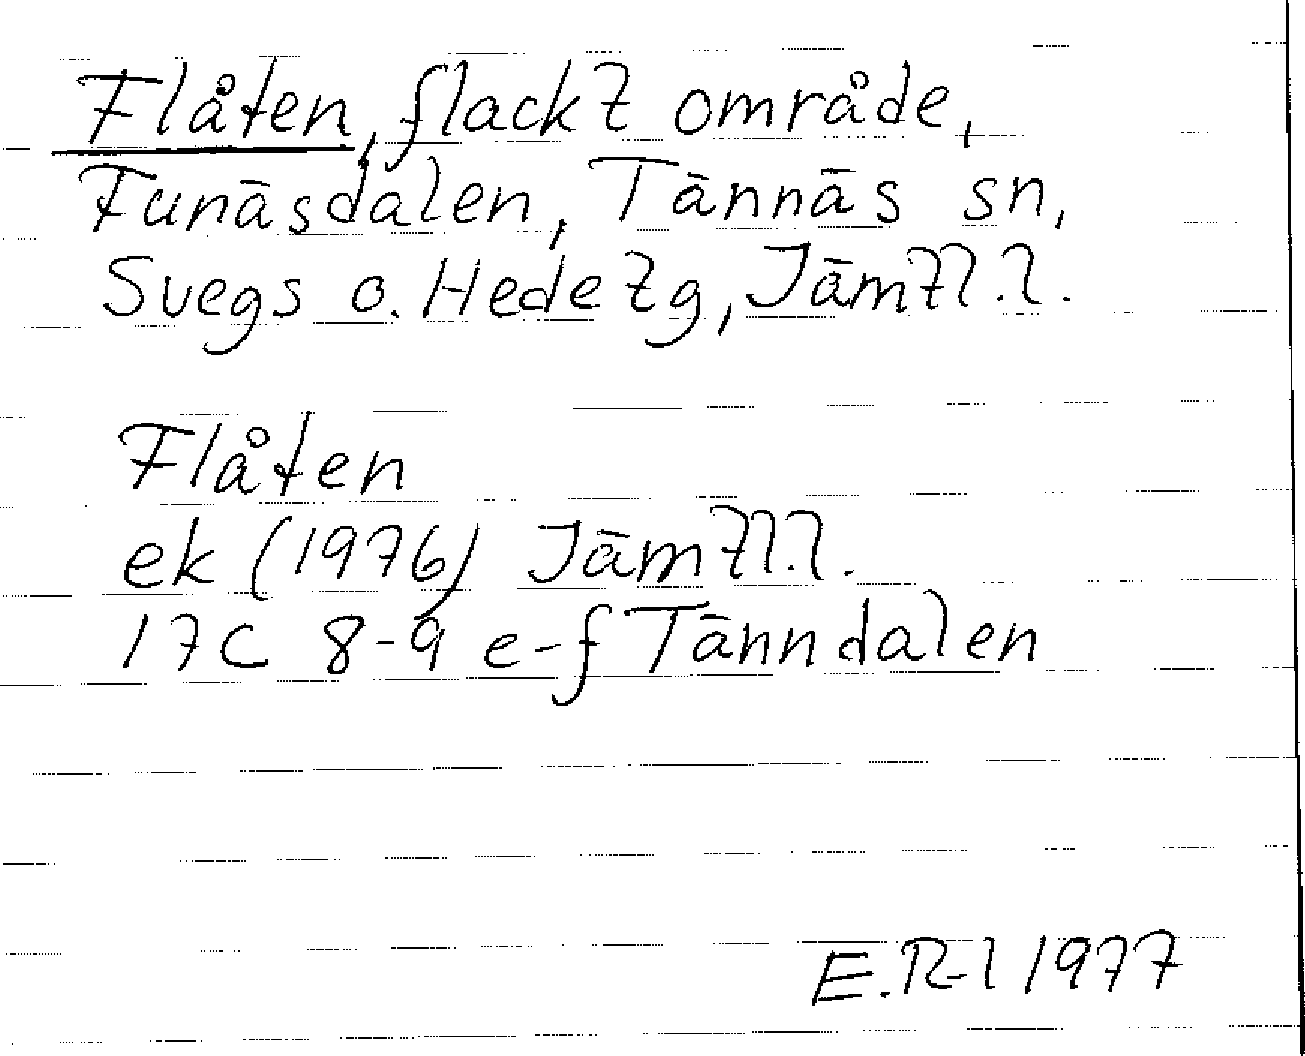 Flåten, flackt område,
Funäsdalen, Tännäs sn,
Svegs o. Hede tg, Jämtl.l.
Flåten
ek (1976) Jämtl.l.
17C 8-9 e-f Tänndalen
E.R-l 1977